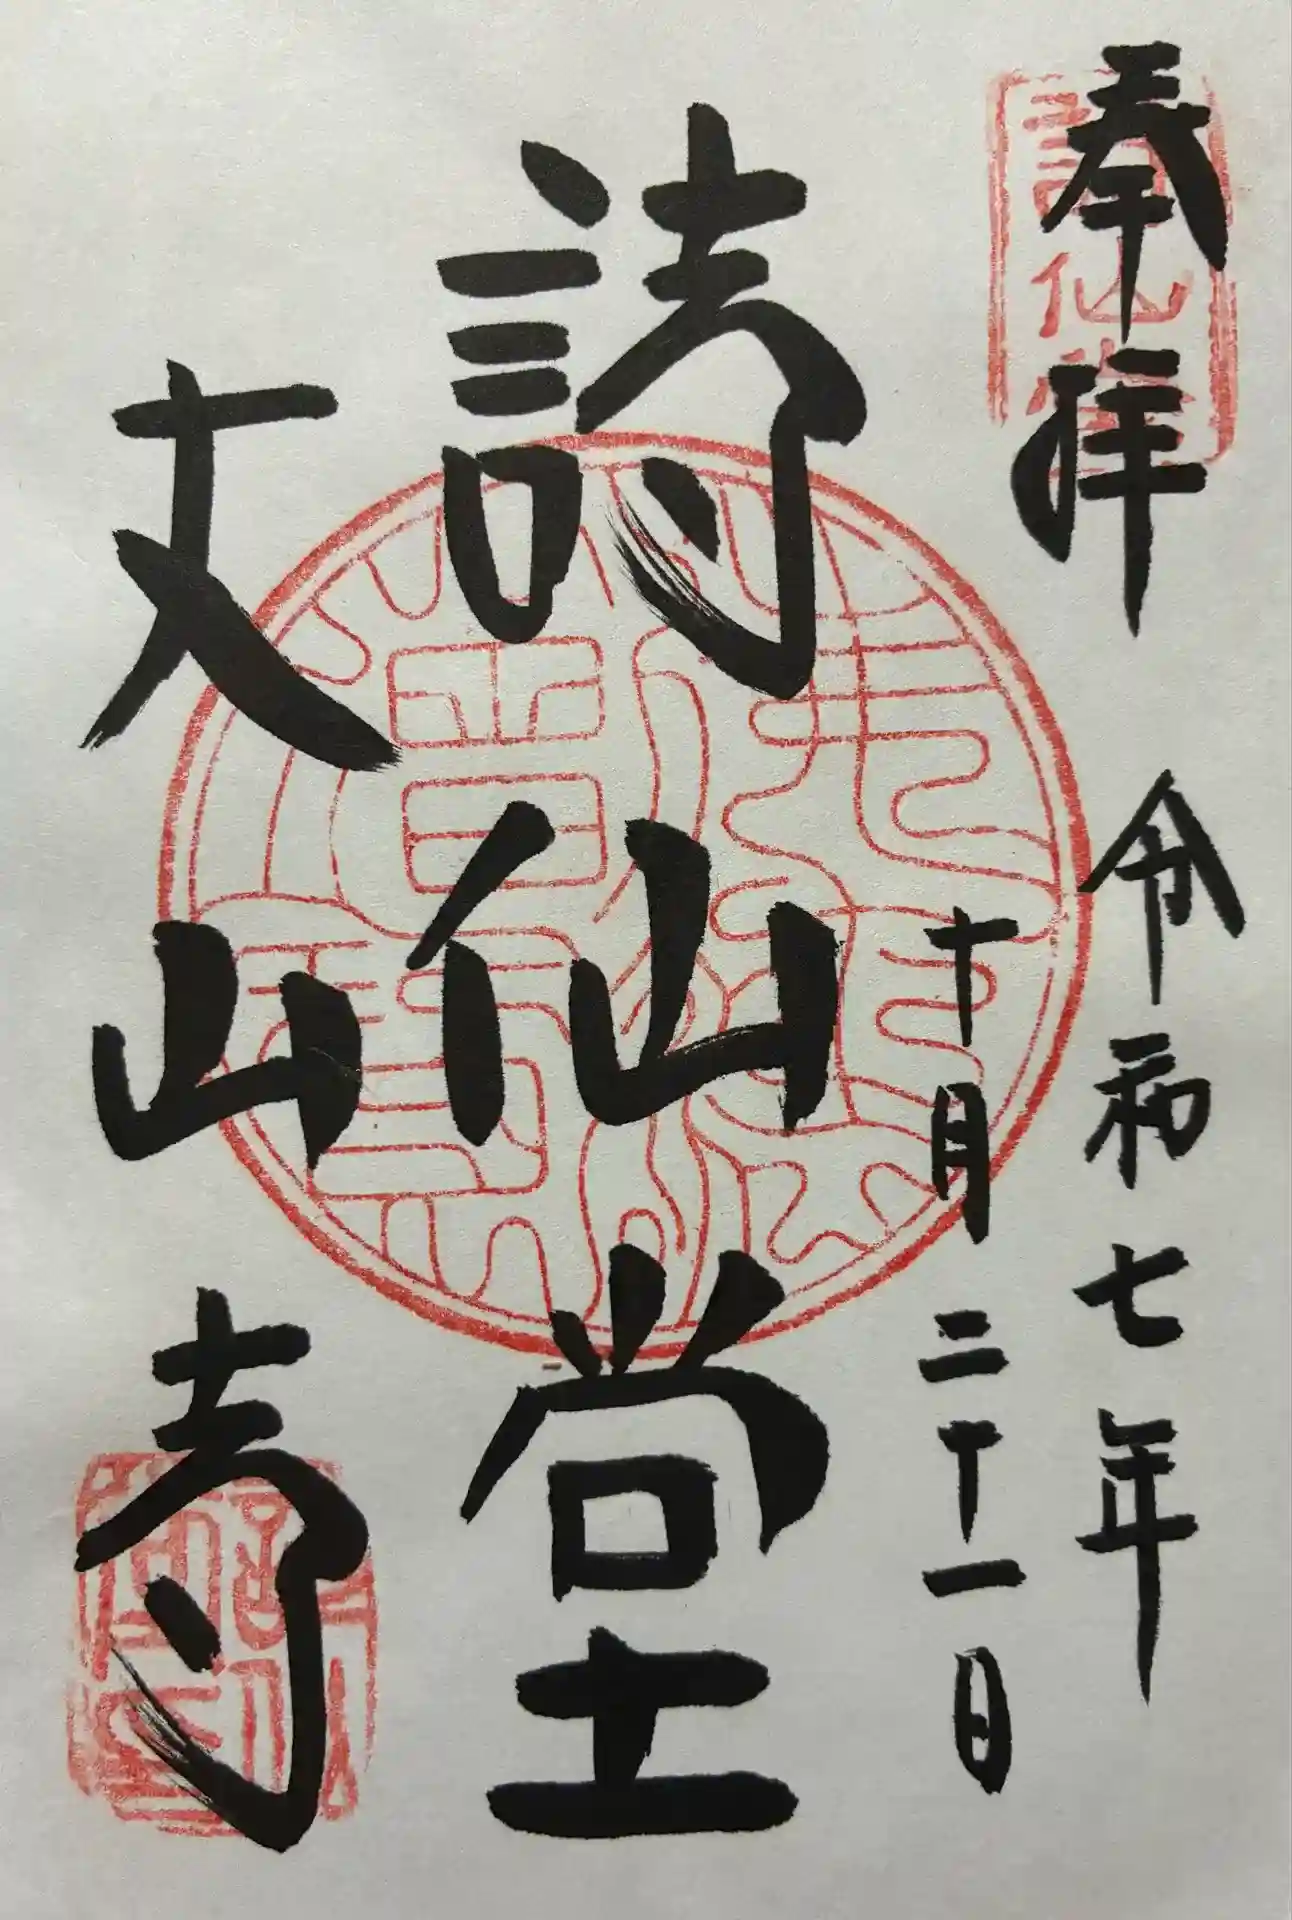 奉拝
詩仙堂
令和七年
十月二十一日
詩仙堂
丈山寺